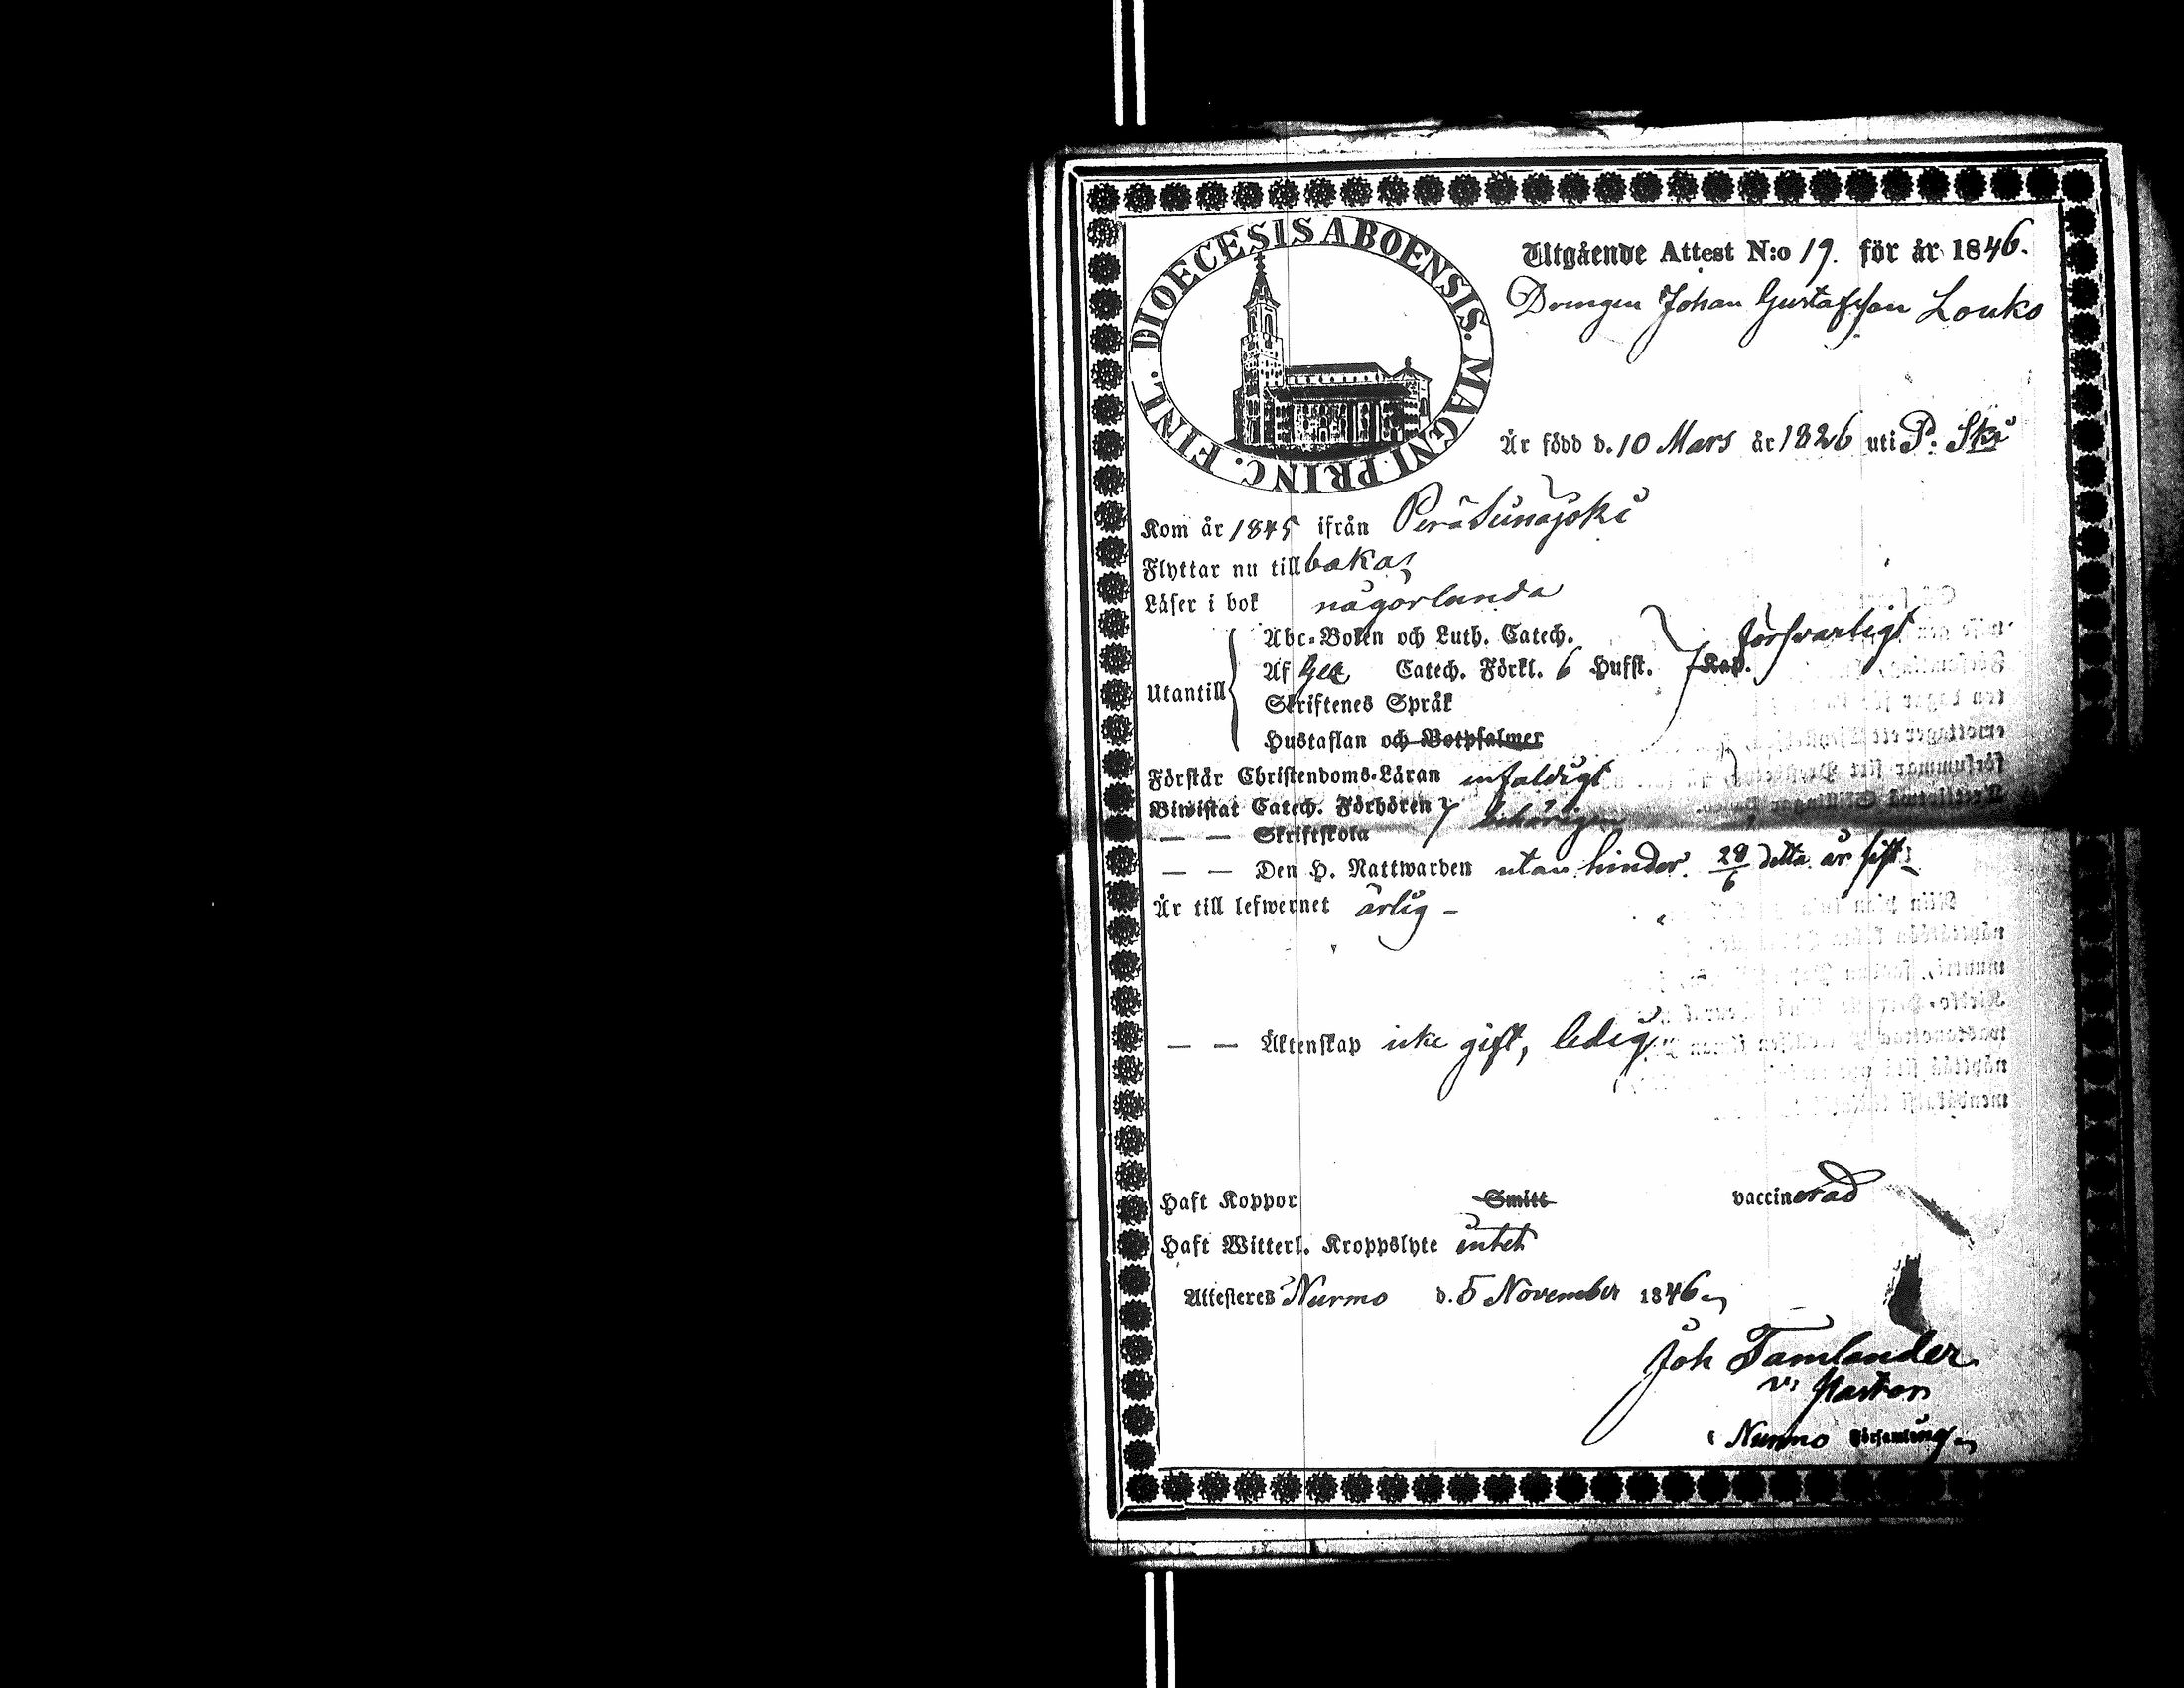 DIOECESIS ABOENSIS. MAGNI PRINC. FINL.
Utgående Attest N:o 19. för år 1846.
Drengen Johan Gustafsson Louko
Är född d. 10 Mars år 1826 uti P. Ski
Kom år 1845 ifrån Peräseinäjoki
Flyttar nu tillbaka
Läser i bok någorlunda
Utantill
Abc-Boken och Luth. Catech.
Af Catech. Förkl. 6 Hufst. Kap. försvarligt
Skriftenes Språk
Hustaflan och Botpsalmer
Förstår Christendoms-Läran enfaldigt
Biwistat Catech. Förhören behörigen
— — Skriftskola
— — Den H. Nattwarden utan hinder. 28/6 detta år sist
Är till lefwernet ärlig –
— — Äktenskap icke gift, ledig
Haft Koppor Smitt vaccinerad
Haft Witterl. Kroppslyte intet
Attesteras Nurmo d. 5 November 1846
Joh Tamlander
v. Pastor
i Nurmo Församling